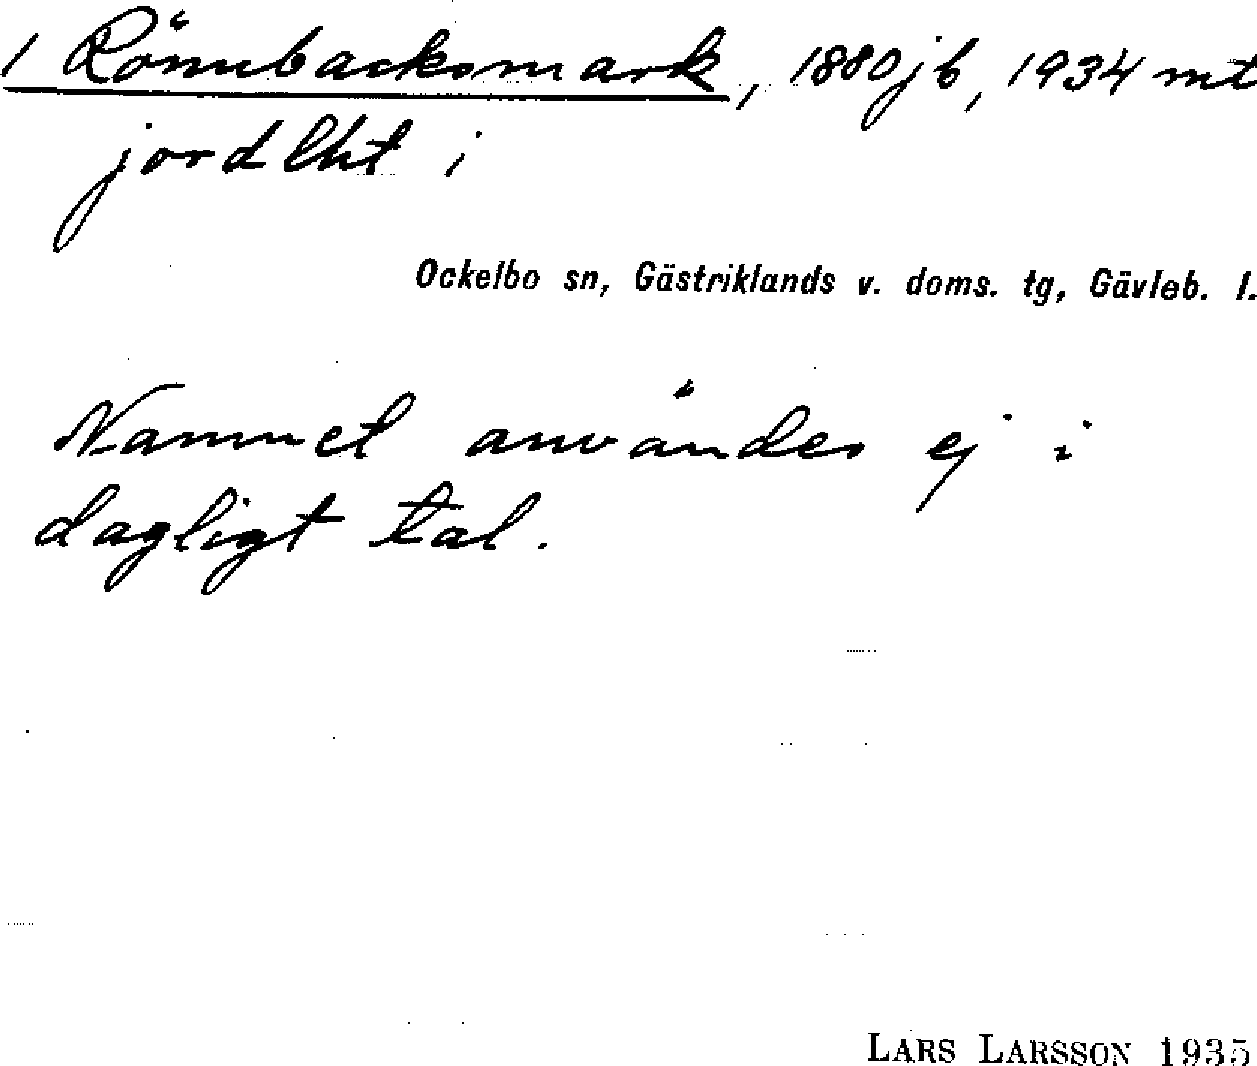 1 Rönnbacksmark, 1880 jb, 1934 mt
jordlht i
Ockelbo sn, Gästriklands v. doms. tg, Gävleb. l.
Namnet användes ej i
dagligt tal.
LARS LARSSON 1935